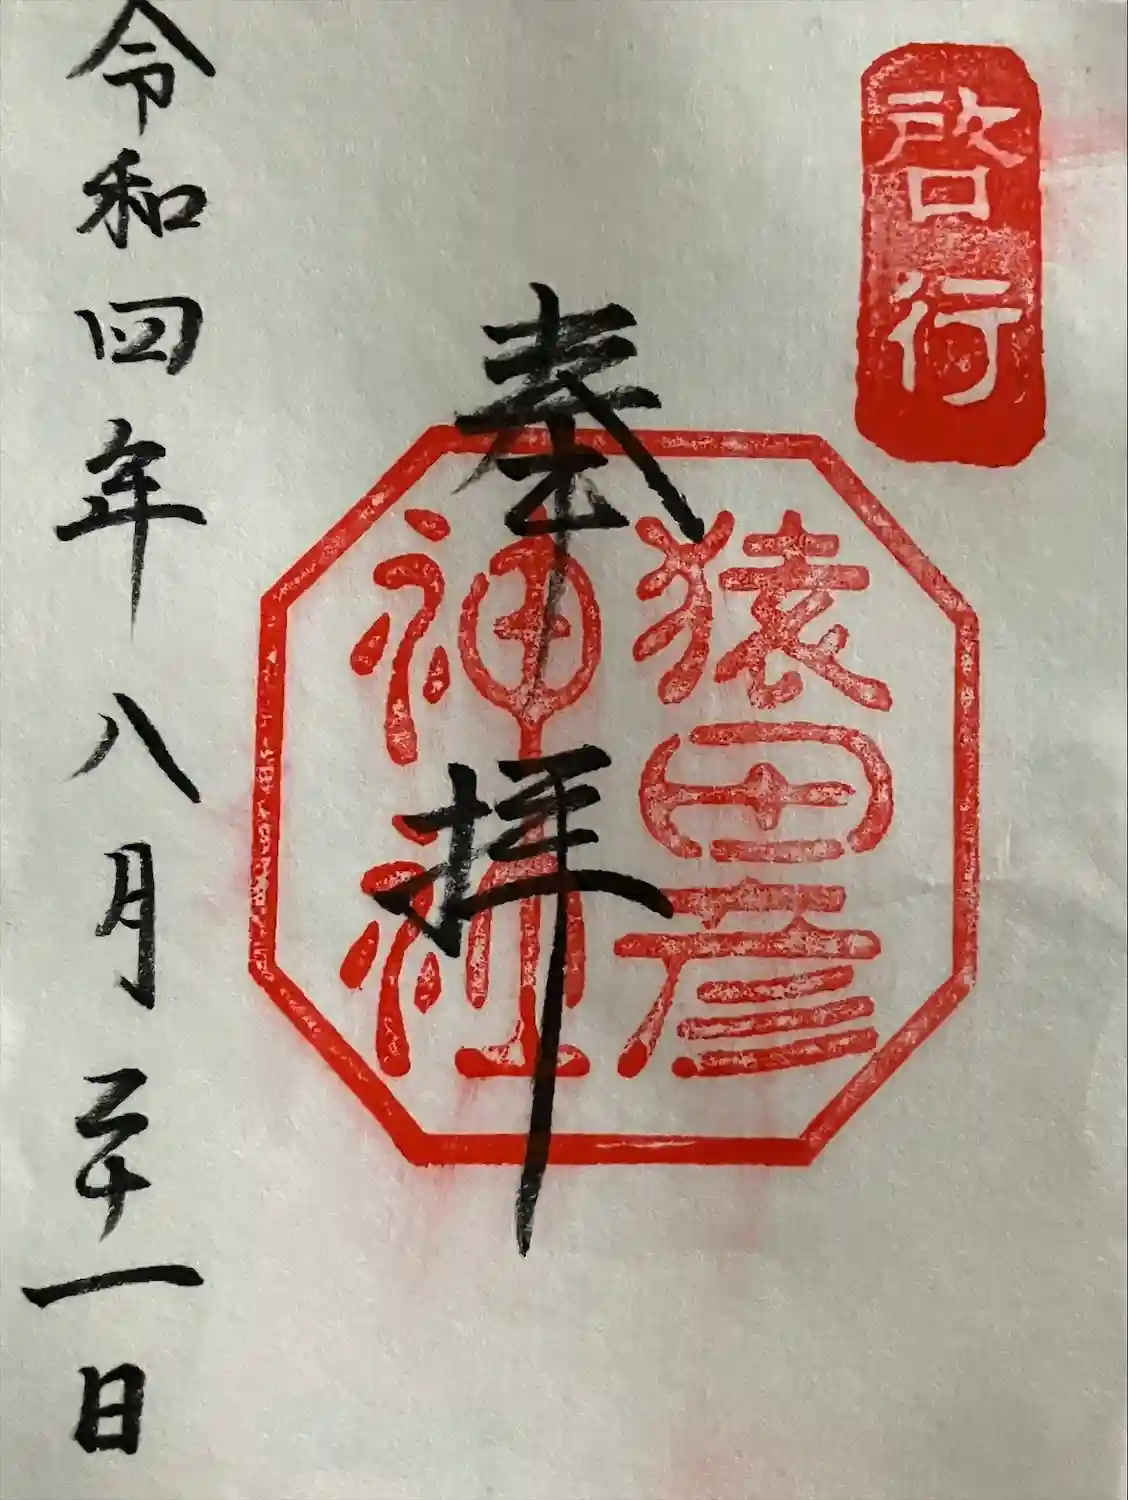 啓行
猿田彦
神社
奉拝
令和四年八月二十一日